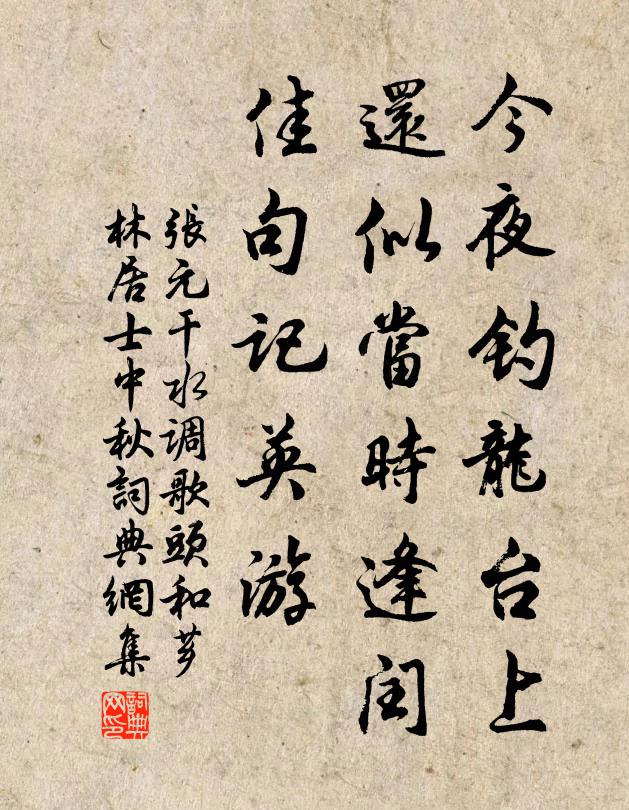 今夜釣龍台上
還似當時逢閏
佳句記英游
張元干水调歌頭和芗
林居士中秋詞典網集
詞典网印